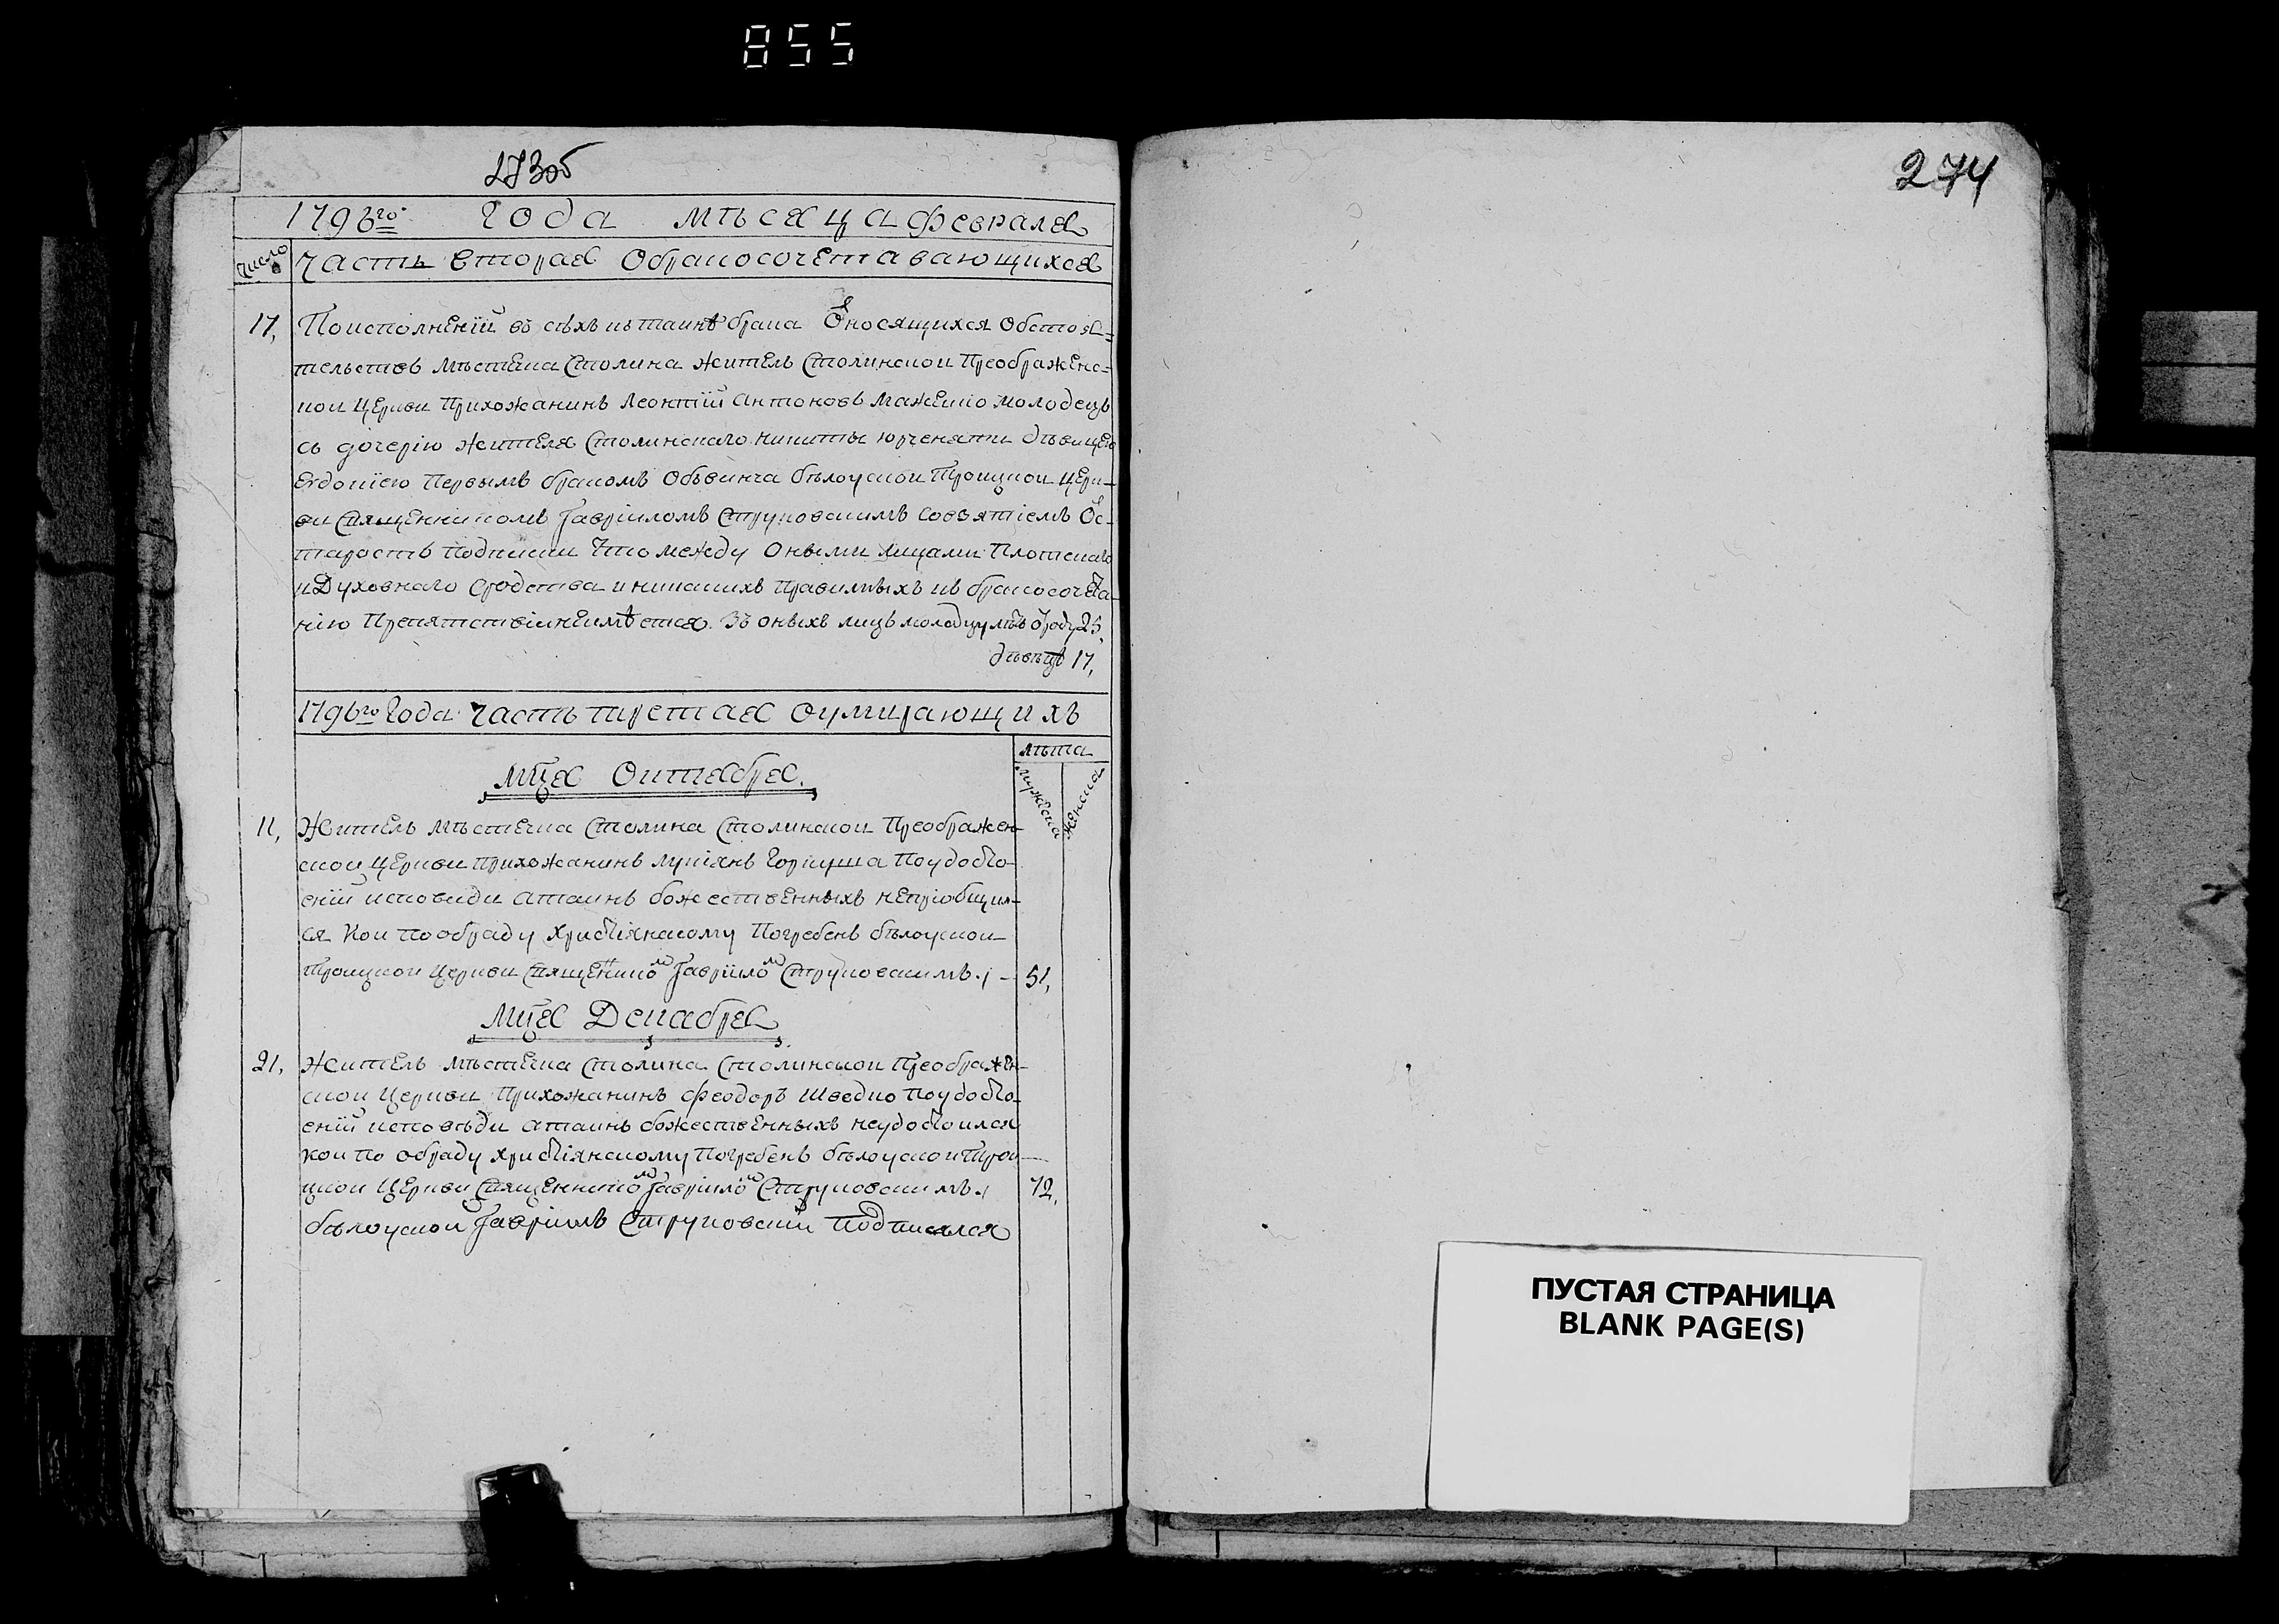 855
273об
1796го года мѣсяца февраля
число
часть вторая Обракосочетавающихся
17, По исполненіи всѣхъ къ таинѣ брака Относящихся Обстоя=
тельствъ мѣстечка Столина житель Столинской Преображенс=
кой Церкви Прихожанинъ Леонтій Антоновъ Мажейко молодецъ
съ дочерію жителя Столинскаго никиты юрченяти дѣвицею
Евдокіею Первымъ бракомъ Обвѣнча бѣлоуской Троицкой Церк-
ви Священникомъ Гавріиломъ Струковскимъ совзятіемъ От
старостъ подписки что между Оными лицами Плотскаго
и Духовнаго Сродства и никакихъ Правилныхъ къ бракосочета-
нію Препятствій неимѣется. Въ оныхъ лицъ молодцу лѣтъ От роду 25,
дѣвицѣ 17,
1796го года часть третяя Оумирающихъ
лѣта
мужеска
женска
Мцѧ Октября.
11, Житель мѣстечка Столина Столинской Преображен-
ской Церкви прихожанинъ лукіянъ Горкуша По удосто-
еніи исповеди а таинъ божественныхъ непріобщил-
ся кои по обряду Християнскому Погребенъ бѣлоуской
Троицкой Церкви Священникомъ Гавріиломъ Струковскимъ./ - 51,
Мцѧ Декабря
21, Житель мѣстечка Столина Столинской Преображен-
ской Церкви Прихожанинъ Феодоръ Шведко По удосто-
еніи исповѣди а таинъ божественныхъ неудостоился
кои по обряду християнскому Погребенъ бѣлоуской Трои-
цкой Церкви Священникомъ Гавріиломъ Струковскимъ./ 72,
бѣлоуской Гавріилъ Струковскій подписался
274
ПУСТАЯ СТРАНИЦА
BLANK PAGE(S)